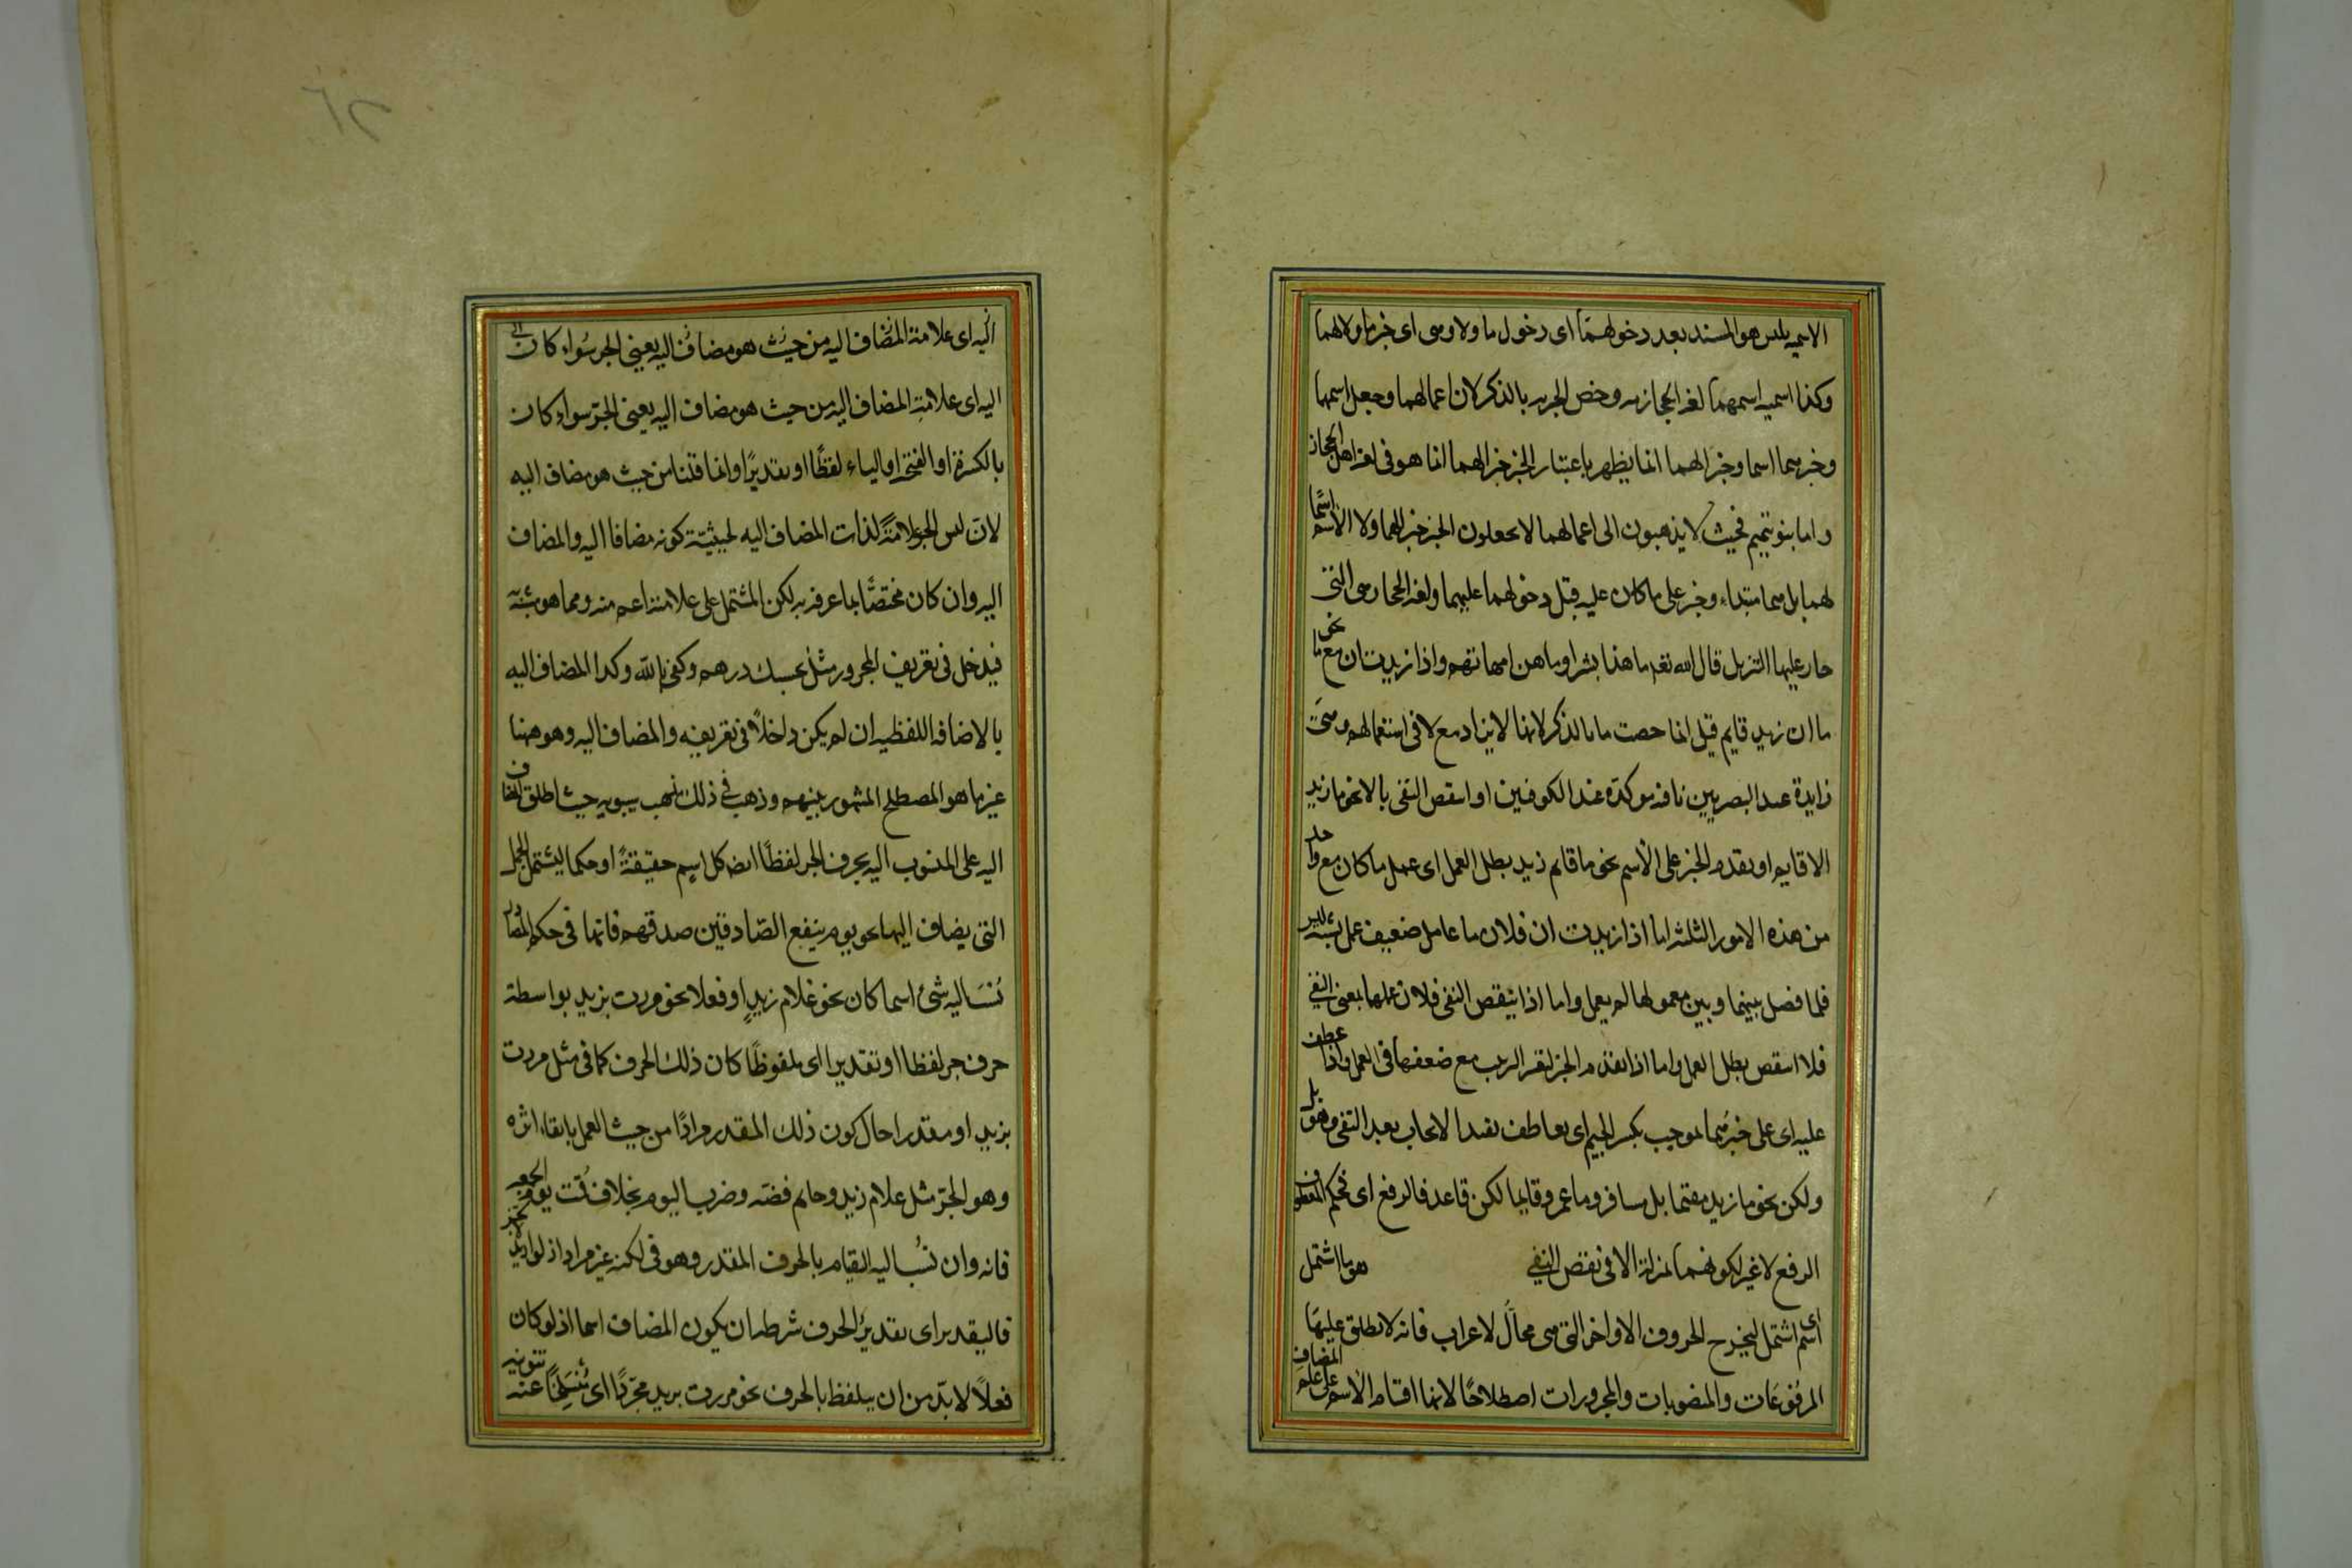 الاسمية بليس هو المسند بعد دخولهما اى دخول ما ولا وهى اى خبر ما ولا لهما
وكذا اسمية اسمهما لغة الحجازية وخص الخبرية بالذكر لان اعمالهما وجعل اسمهما
وخبرهما اسما وخبرا لهما انما يظهر باعتبار الخبر خبرا لهما انما هو فى لغة اهل الحجاز
واما بنو تميم فحيث لا يذهبون الى اعمالهما لا يجعلون الخبر خبرا لهما ولا الاسم اسمًا
لهما بل هما مبتداء وخبر على ما كان عليه قبل دخولهما عليهما ولغة الحجاز هى التى
جاء عليها التنزيل قال الله تعه ما هذا بشرا وما هن امهاتهم واذا زيدت ان مع ما نحو
ما ان زيد قايم قيل انما خصت ما بالذكر لانها لا يزاد مع لا فى استعمالهم وهى
زايدة عند البصريين نافية موكدة عند الكوفيين او انتقض النفى بالا نحو ما زيد
الا قايم او تقدم الخبر على الاسم نحو ما قائم زيد بطل العمل اى عمل ما كان مع واحد
من هذه الامور الثلثة اما اذا زيدت ان فلان ما عامل ضعيف عمل لشبه ليس
فلما فصل بينها وبين معمولها لم يعمل واما اذا انتقض النفى فلان عملها بمعنى النفى
فلما انتقض بطل العمل واما اذا تقدم الخبر لتغير الترتيب مع ضعفها فى العمل واذا عطف
عليه اى على خبرهما بموجب بكسر الجيم اى بعاطف يفيد الايجاب بعد النفى وهو بل
ولكن نحو ما زيد مقيما بل مسافر وما عمرو قايما لكن قاعد فالرفع اى فحكم المعطوف
الرفع لا غير لكونهما بمنزلة الا فى نقض النفى هو ما اشتمل
اى اسم اشتمل ليخرج الحروف الاواخر التى هى محالّ لاعراب فانه لا يطلق عليها
المرفوعات والمنصوبات والمجرورات اصطلاحًا لانها اقسام الاسم على علم المضاف
اليه اى علامة المضاف اليه من حيث هو مضاف اليه يعنى الجر سواء كان
اليه اى علامة المضاف اليه من حيث هو مضاف اليه يعنى الجرّ سواء كان
بالكسرة او الفتحة او الياء لفظًا او تقديرًا وانما قلنا من حيث هو مضاف اليه
لان ليس الجر علامة لذات المضاف اليه لحيثية كونه مضافا اليه والمضاف
اليه وان كان مختصًّا بما عرفه به لكن المشتمل على علامته اعم منه ومما هو مشبه
فيدخل فى تعريف المجرور مثل بحسبك درهم وكفى بالله وكذا المضاف اليه
بالاضافة اللفظية ان لم يكن داخلاً فى تعريفه والمضاف اليه وهو ههنا
غير ما هو المصطلح المشهور بينهم وذهب فى ذلك مذهب سيبويه حيث اطلق المضاف
اليه على المنسوب اليه بحرف الجر لفظًا ايضه كل اسم حقيقةً او حكما ليشتمل الجمل
التى يضاف اليها نحو يوم ينفع الصّادقين صدقهم فانها فى حكم المصادر
نُسَب اليه شئ اسما كان نحو غلام زيدٍ او فعلا نحو مررت بزيد بواسطة
حرف جر لفظا او تقديرا اى ملفوظًا كان ذلك الحرف كما فى مثل مررت
بزيد او مقدرا حال كون ذلك المقدر مرادًا من حيث العمل بابقاء اثره
وهو الجرّ مثل غلام زيد وخاتم فضه وضرب اليوم بخلاف قمت يوم الجمعه
فانه وان نُسب اليه القيام بالحرف المقدر وهو فى لكنه غير مراد اذ لو اريد
فالتقدير اى تقدير الحرف شرطه ان يكون المضاف اسما اذ لو كان
فعلاً لا بدّ من ان يتلفظ بالحرف نحو مررت بزيد مجرّدًا اى مُنسَلِخًا عنه تنوينه